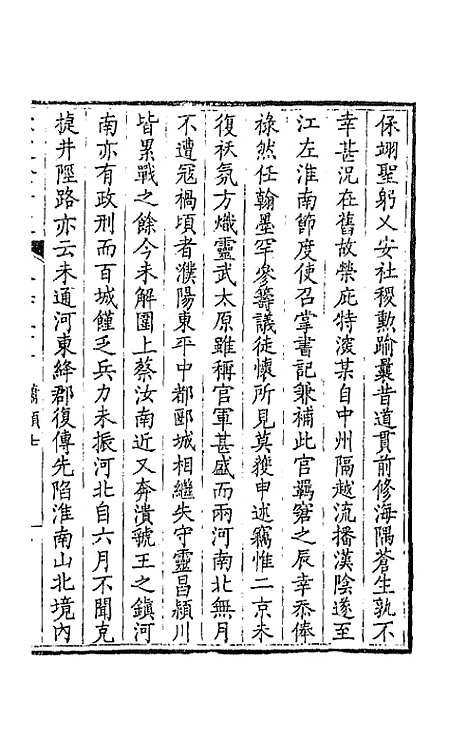 保翊聖躬乂安社稷勲踰曩昔道貫前修海隅蒼生孰不
幸甚況在舊故榮庇特深某自中州隔越流播漢陰遂至
江左淮南節度使召掌書記兼補此官羈窘之辰幸忝俸
祿然任翰墨罕參籌議徒懷所見莫獲申述竊惟二京未
復祅氛方熾靈武太原雖稱官軍甚盛而兩河南北無月
不遭冦禍頃者濮陽東平中都郾城相繼失守靈昌潁川
皆累戰之餘今未解圍上蔡汝南近又奔潰虢王之鎮河
南亦有政刑而百城饉乏兵力未振河北自六月不聞克
捷井陘路亦云未通河東絳郡復傳先陷淮南山北境内
蕭頴士